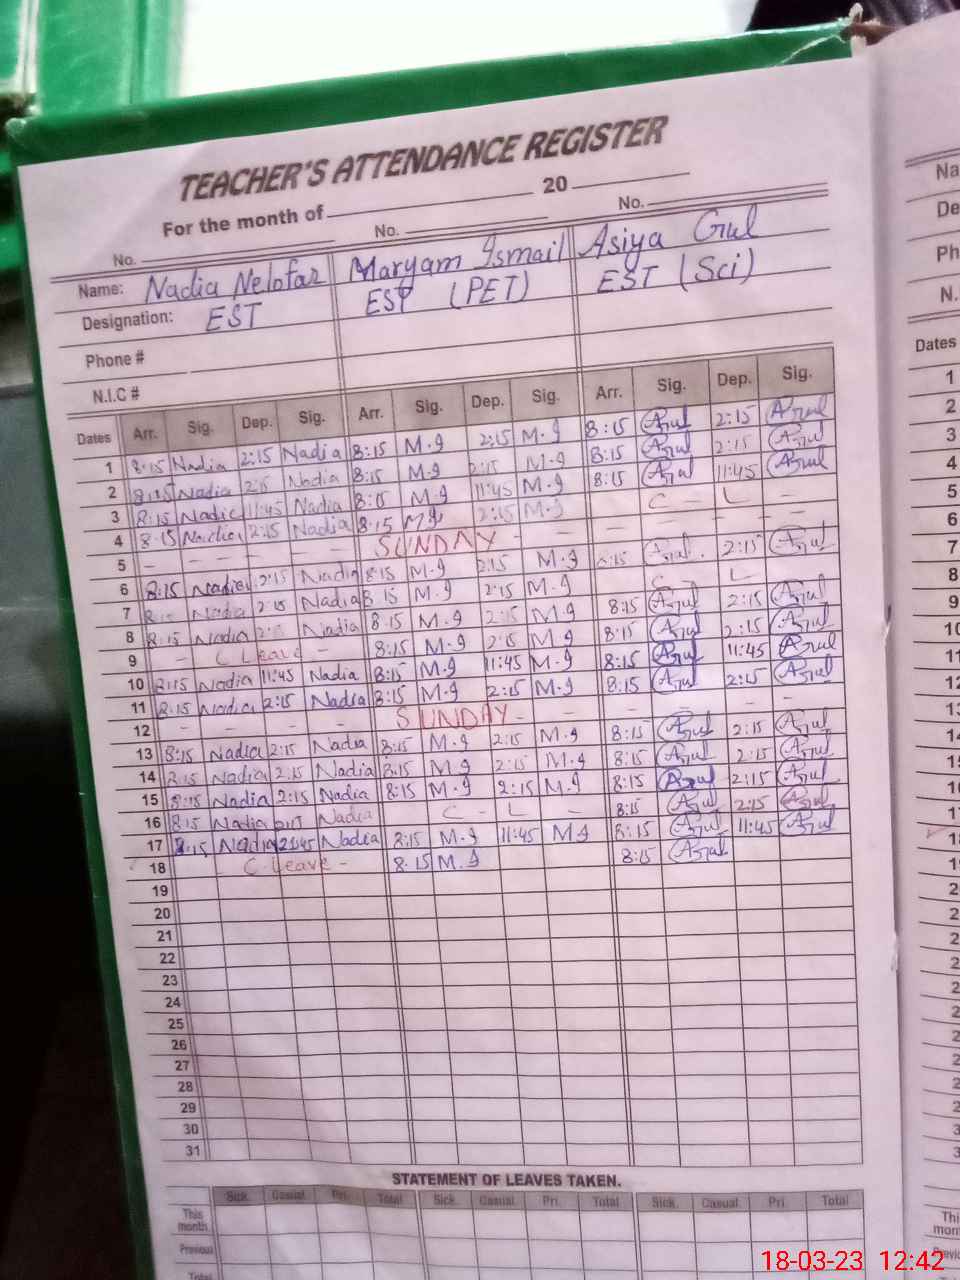 TEACHER'S ATTENDANCE REGISTER
For the month of 20
No. No. No.
Name: Nadia Nelofar Maryam Ismail Asiya Gul
Designation: EST EST (PET) EST (Sci)
Phone #
N.I.C #
Dates Arr. Sig. Dep. Sig. Arr. Sig. Dep. Sig. Arr. Sig. Dep. Sig.
1 8:15 Nadia 2:15 Nadia 8:15 M.I 2:15 M.I 8:15 2:15
2 8:15 Nadia 2:15 Nadia 8:15 M.I 2:15 M.I 8:15 2:15
3 8:15 Nadia 11:45 Nadia 8:15 M.I 11:45 M.I 8:15 11:45
4 8:15 Nadia 2:15 Nadia 8:15 M.I 2:15 M.I - C - L -
5 - - - - SUNDAY - - - - - -
6 8:15 Nadia 2:15 Nadia 8:15 M.I 2:15 M.I 8:15 2:15
7 Nadia 2:15 Nadia 8:15 M.I 2:15 M.I C L -
8 8:15 Nadia Nadia 8:15 M.I 2:15 M.I 8:15 2:15
9 - C Leave - 8:15 M.I 2:15 M.I 8:15 2:15
10 8:15 Nadia 11:45 Nadia 8:15 M.I 11:45 M.I 8:15 11:45
11 8:15 Nadia 2:15 Nadia 8:15 M.I 2:15 M.I 8:15 2:15
12 - - - - SUNDAY - - - - - -
13 8:15 Nadia 2:15 Nadia 8:15 M.I 2:15 M.I 8:15 2:15
14 8:15 Nadia 2:15 Nadia 8:15 M.I 2:15 M.I 8:15 2:15
15 8:15 Nadia 2:15 Nadia 8:15 M.I 2:15 M.I 8:15 2:15
16 8:15 Nadia Nadia - C - L - 8:15 2:15
17 8:15 Nadia Nadia 8:15 M.I 11:45 M.I 8:15 11:45
18 C-Leave - 8:15 M.I 8:15
19
20
21
22
23
24
25
26
27
28
29
30
31
STATEMENT OF LEAVES TAKEN.
Sick. Casual Pri. Total Sick. Casual Pri. Total Sick. Casual Pri. Total
This month
Previous
Total
Dates
1
2
3
4
5
6
7
8
9
10
11
12
18-03-23 12:42